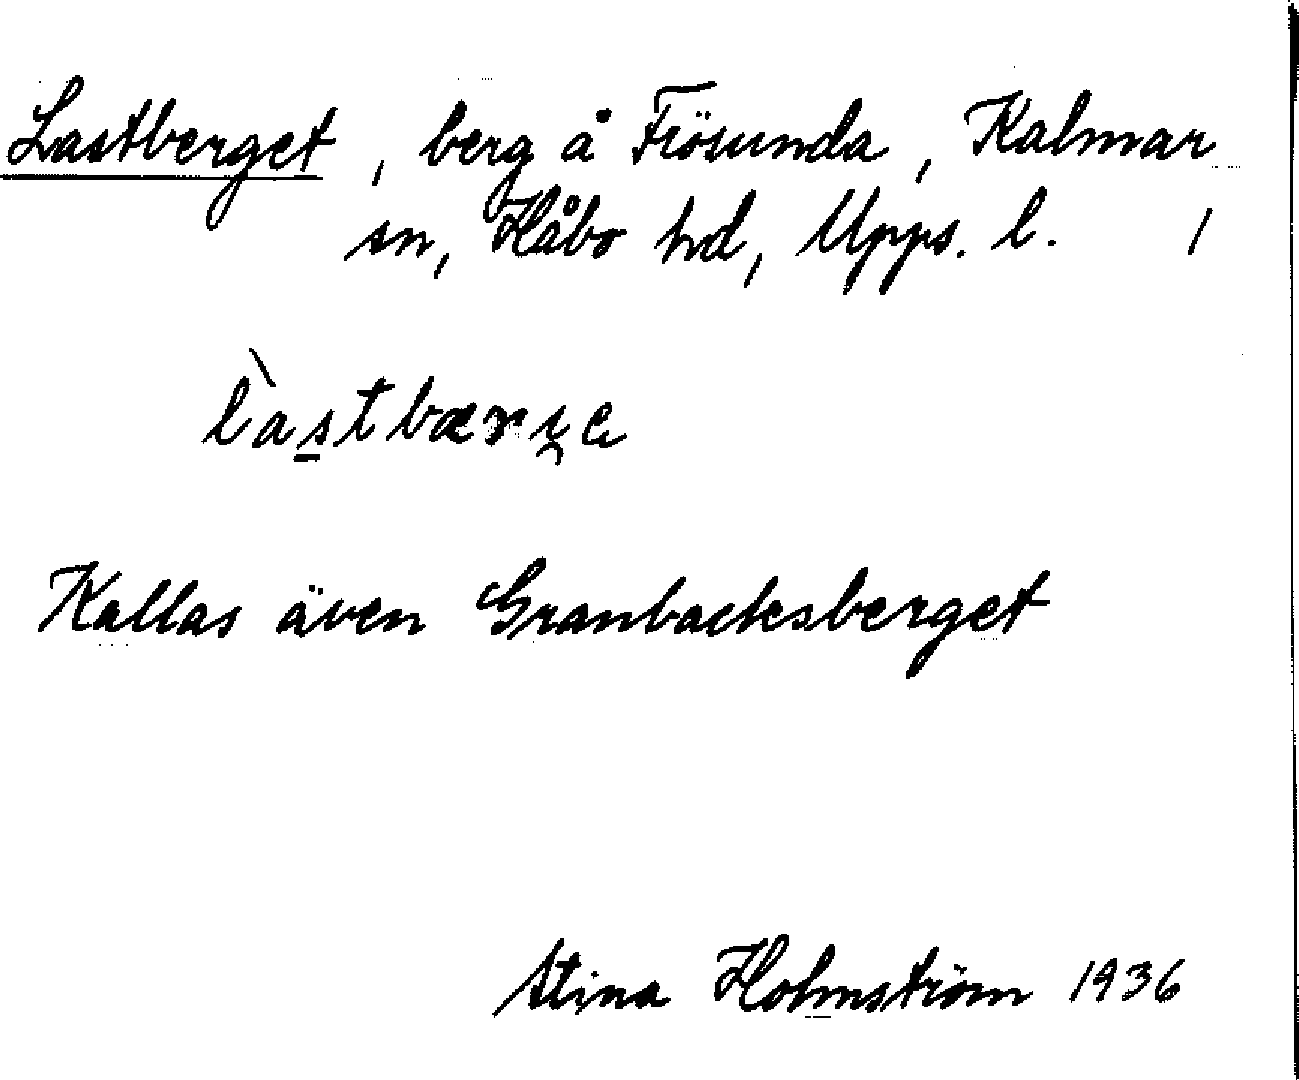 Lastberget, berg å Frösunda, Kalmar
sn, Håbo hd, Upps. l. /
làstbærɪ̯e
Kallas även Granbacksberget
Stina Holmström 1936